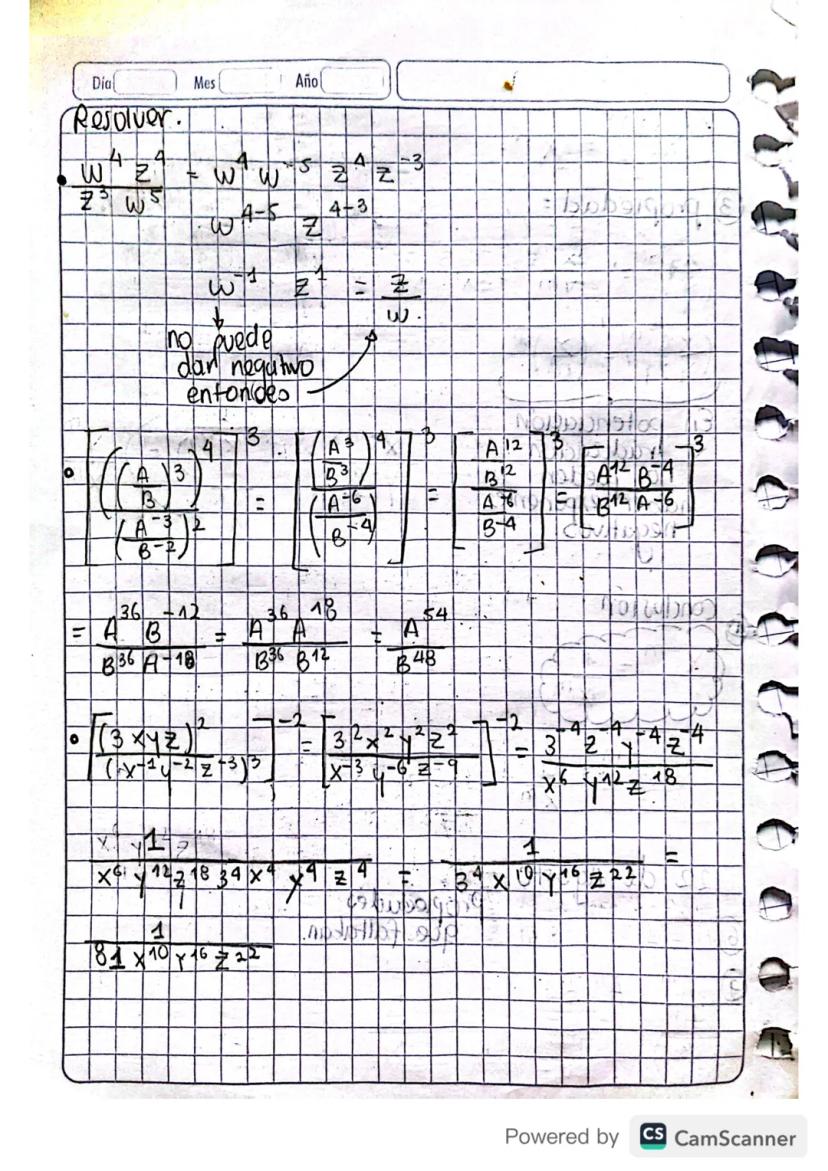 Día Mes Año
Resolver.
• w^4 z^4 / z^3 w^5 = w^4 w^-5 z^4 z^-3
w^4-5 z^4-3
w^-1 z^1 = z / w.
no puede
dar negativo
entonces
• [((A/B)^3)^4 / (A^-3/B^-2)^2]^3 = [(A^3/B^3)^4 / (A^-6/B^-4)]^3 = [A^12/B^12 / A^-6/B^-4]^3 = [A^12 B^-4 / B^12 A^-6]^3
= A^36 B^-12 / B^36 A^-18 = A^36 A^18 / B^36 B^12 = A^54 / B^48
• [(3xyz)^2 / (x^-1 y^-2 z^-3)^3]^-2 = [3^2 x^2 y^2 z^2 / x^-3 y^-6 z^-9]^-2 = 3^-4 z^-4 y^-4 z^-4 / x^6 y^12 z^18
1 / x^6 y^12 z^18 3^4 x^4 y^4 z^4 = 1 / 3^4 x^10 y^16 z^22 =
1 / 81 x^10 y^16 z^22
Powered by CS CamScanner